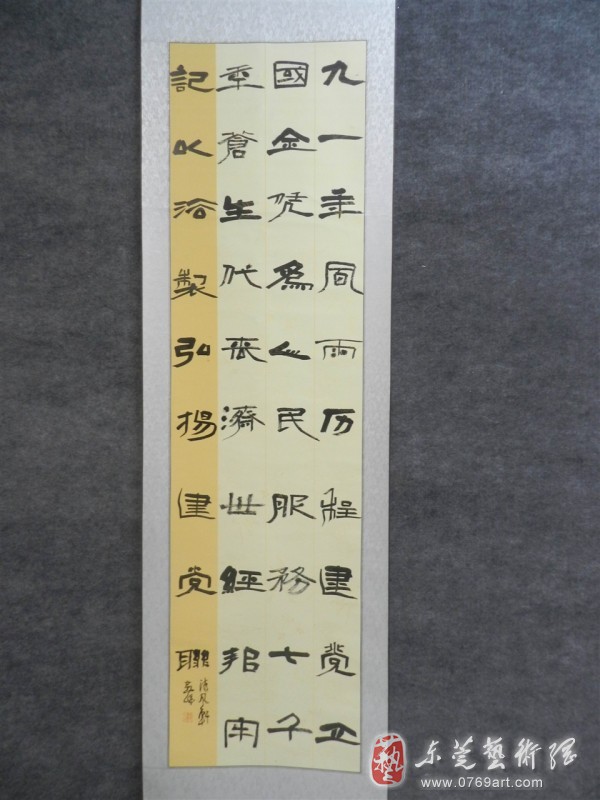 九一年風雨历程建党立
國全凭為人民服務七千
年蒼生代表濟世經邦牢
記以法製弘揚建党聯
藝
东莞藝術網
www.0769art.com